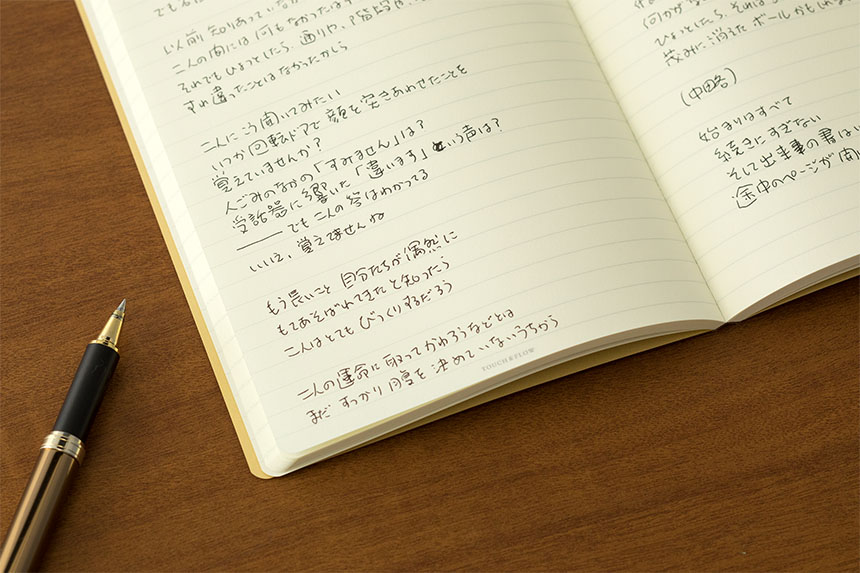 でも
以前 知りあっていなか
二人の間には何もなかったは
それでもひょっとしたら、通りや、階段や、
すれ違ったことはなかったかしら
二人にこう聞いてみたい
いつか回転ドアで 顔を突きあわせたことを
覚えていませんか?
人ごみのなかの「すみません」は?
受話器に響いた「違います」という声は?
―― でも二人の答はわかってる
いいえ、覚えてませんね
もう長いこと 自分たちが偶然に
もてあそばれてきたと知ったら
二人はとても びっくりするだろう
二人の運命に取ってかわろうなどとは
まだ すっかり腹を決めていないうちから
TOUCH&FLOW
何かが
ひょっとしたら、それは
茂みに消えた ボールかもしれ
(中略)
始まりはすべて
続きにすぎない
そして出来事の書は
途中のページが開い